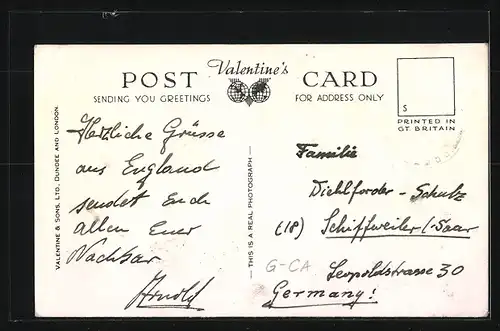 POST Valentine's CARD
SENDING YOU GREETINGS FOR ADDRESS ONLY
S
PRINTED IN
GT. BRITAIN
VALENTINE & SONS, LTD., DUNDEE AND LONDON
THIS IS A REAL PHOTOGRAPH
Herzliche Grüsse
aus England
sendet Euch
allen Euer
Nachbar
Arnold
Familie
Diehlforder - Schulz
(18) Schiffweiler/-Saar
G-CA
Leopoldstrasse 30
Germany!